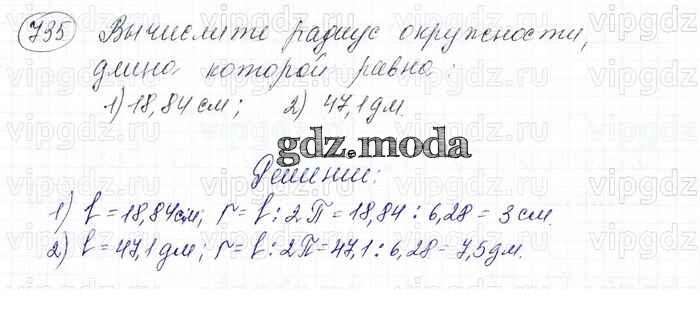 735 Вычислите радиус окружности,
длина которой равна:
1) 18,84 см; 2) 47,1 дм.
gdz.moda
Решение:
1) ℓ = 18,84 см; r = ℓ : 2π = 18,84 : 6,28 = 3 см.
2) ℓ = 47,1 дм; r = ℓ : 2π = 47,1 : 6,28 = 7,5 дм.
vipgdz.ru